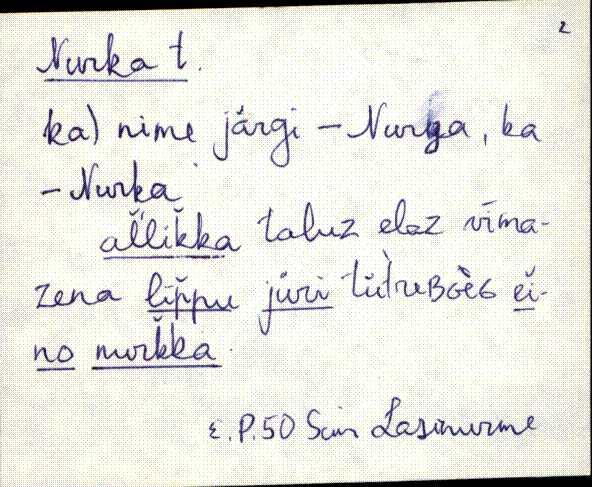 2
Nurka t.
ka) nime järgi – Nurga, ka
– Nurka
allikka taluz elaz vīma-
zena lippu jüri ei-
no nurkka.
E.P.50 Lasinurme